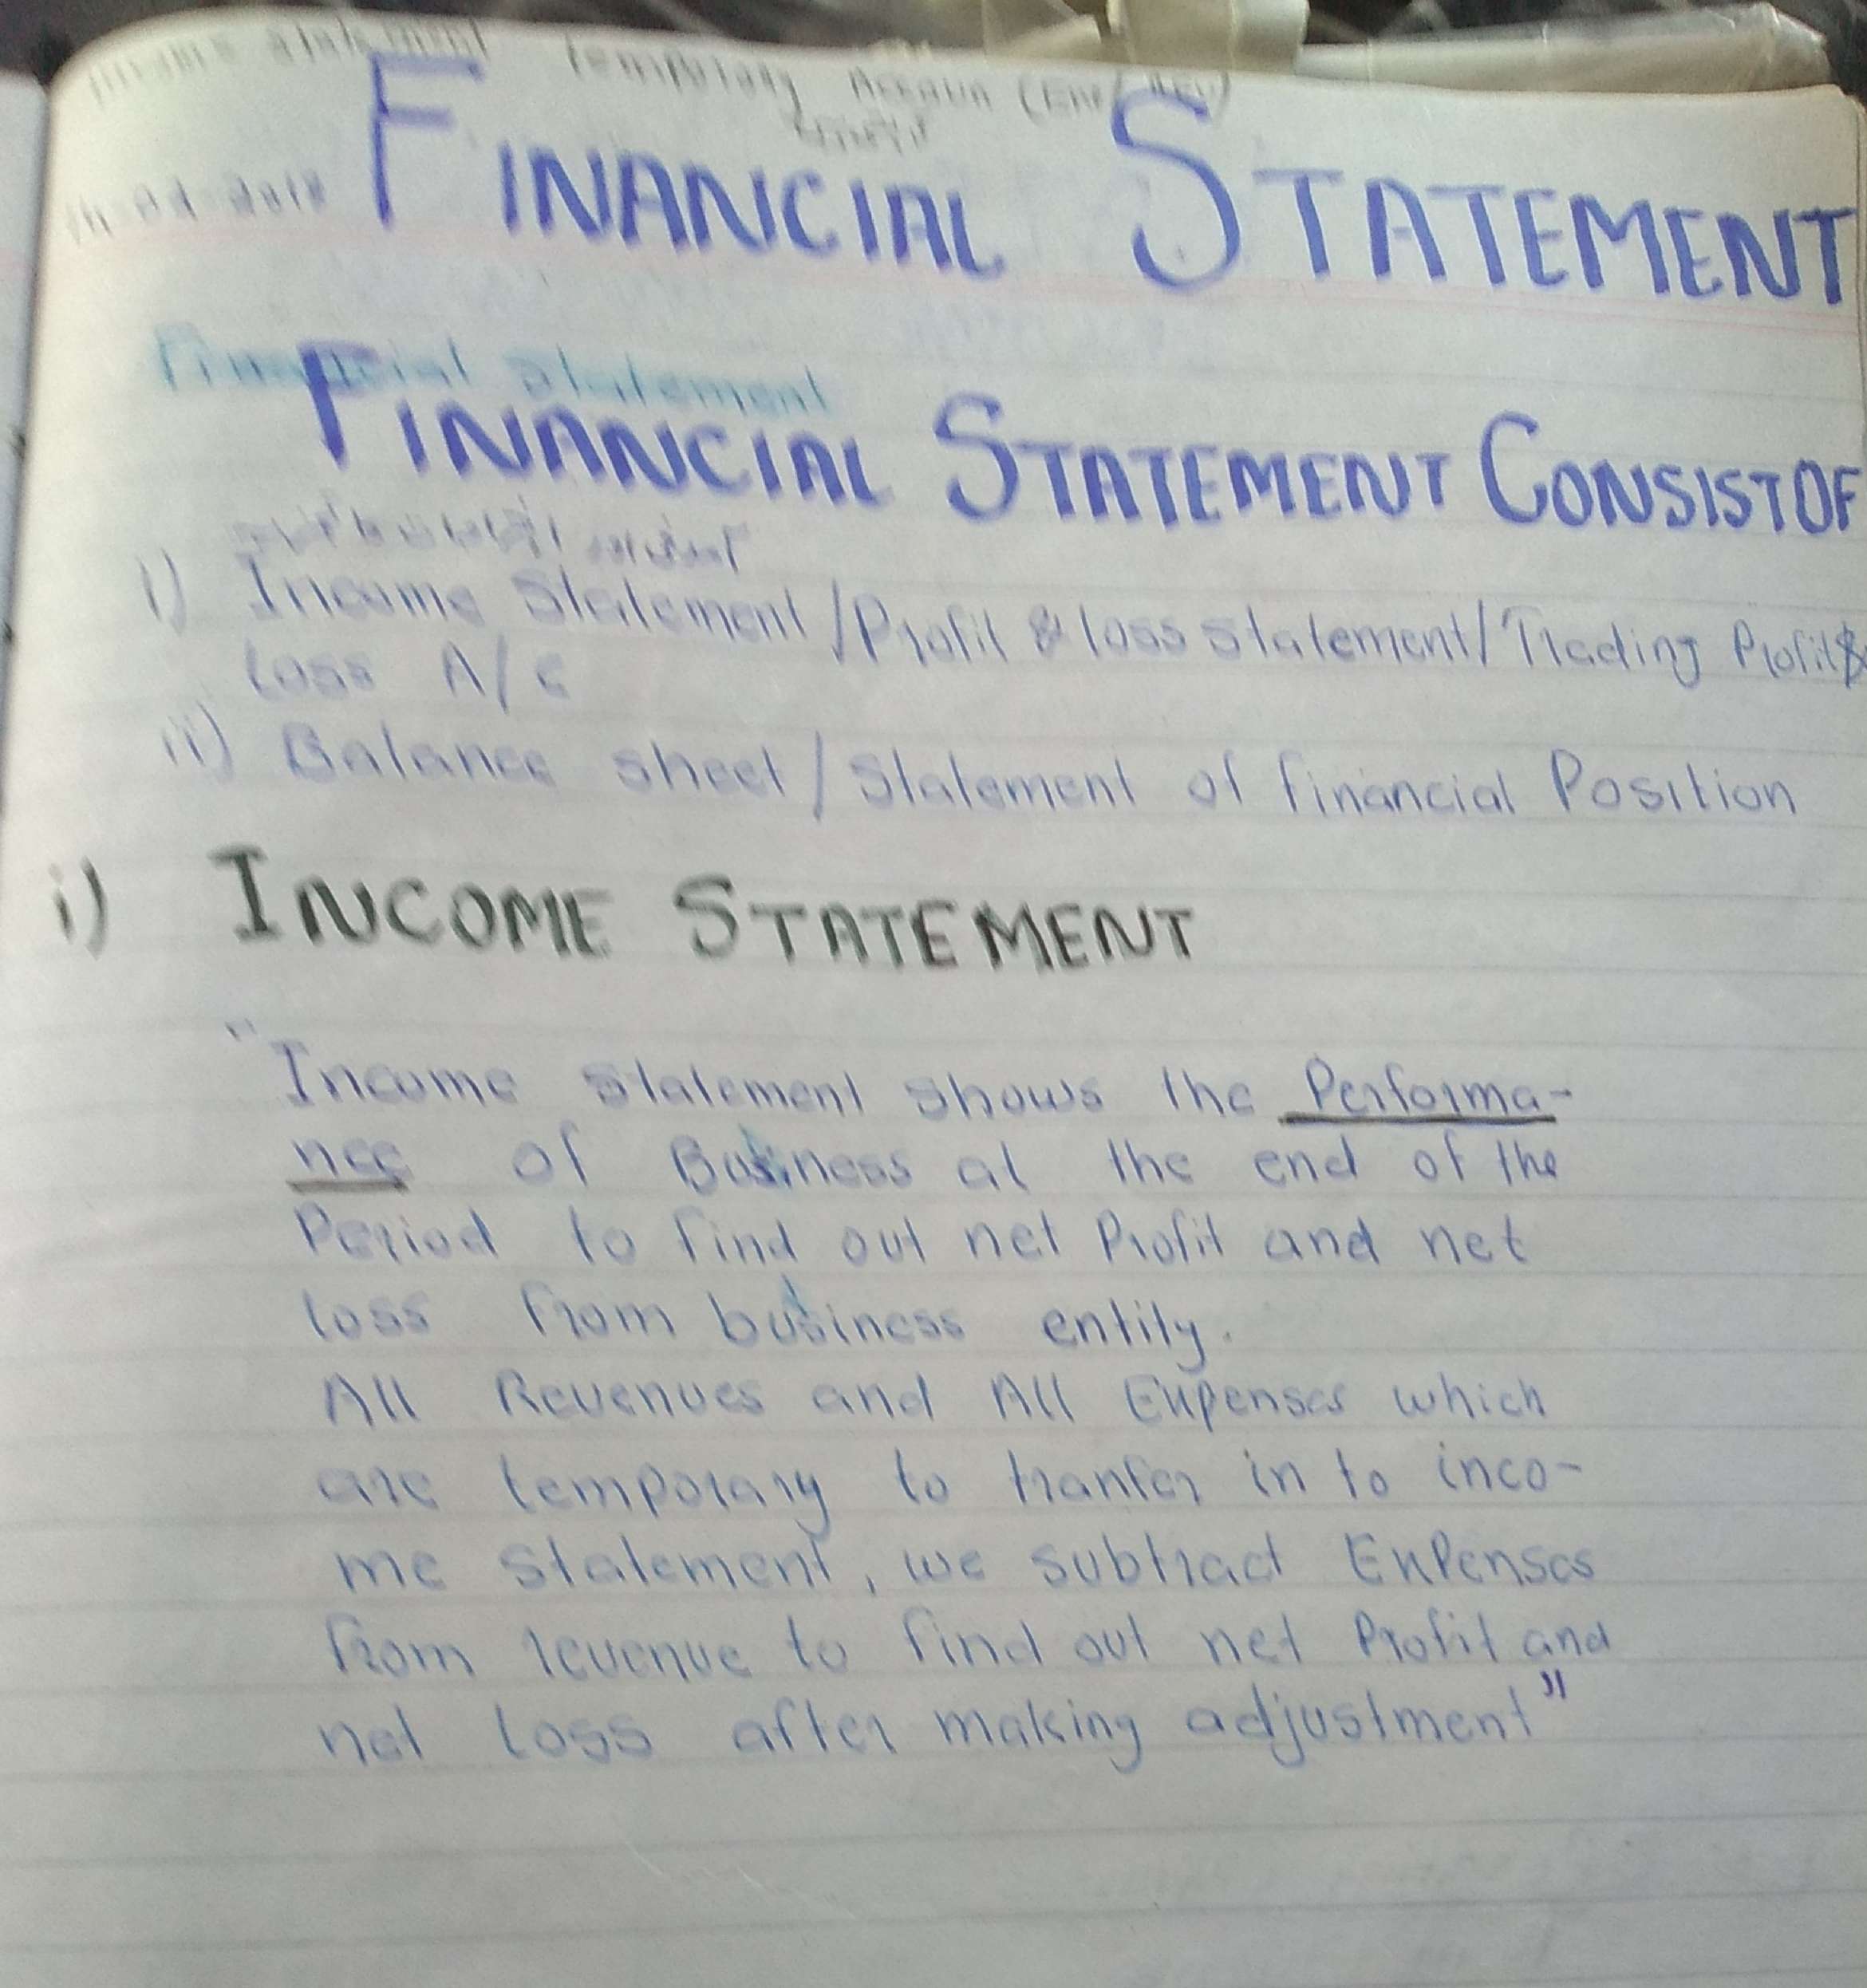 income statement temporary Account (EXP/REV)
FINANCIAL STATEMENT
Financial statement
FINANCIAL STATEMENT CONSIST OF
i) Income Statement/Profit & loss statement/Trading Profit &
loss A/c
ii) Balance sheet/Statement of financial Position
i) INCOME STATEMENT
"Income statement shows the Performa-
nce of Business at the end of the
Period to find out net Profit and net
loss from business entity.
All Revenues and All Expenses which
are temporary to tranfer in to inco-
me statement, we subtract Expenses
from revenue to find out net Profit and
net loss after making adjustment"